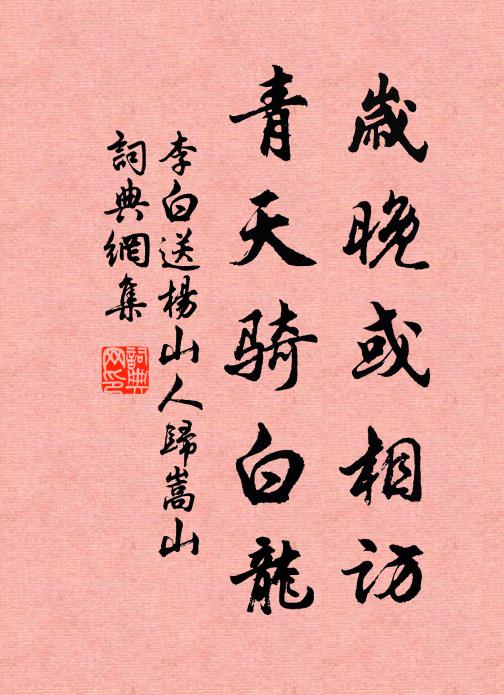 歲晚或相訪
青天騎白龍
李白送楊山人歸嵩山
詞典網集
詞典
网印